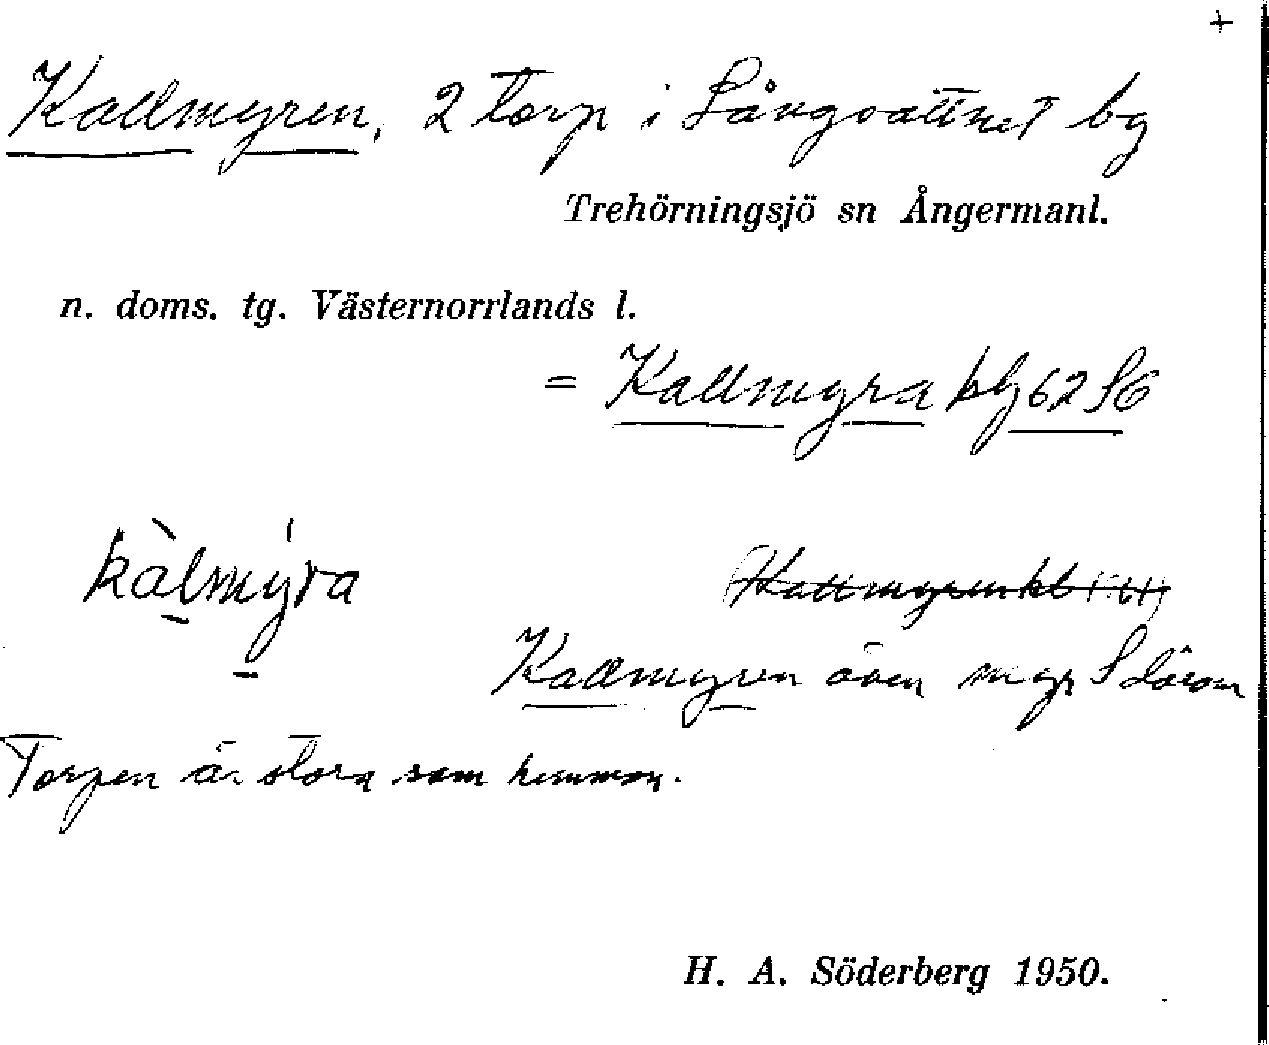 +
Kallmyren, 2 torp i Långvattnet by
Trehörningsjö sn Ångermanl.
n. doms. tg. Västernorrlands l.
= Kallmyra blg 62 S6
kàlmýra
Kallmyren kbl
Kallmyren även myr S därom
Torpen är stora som hemman.
H. A. Söderberg 1950.